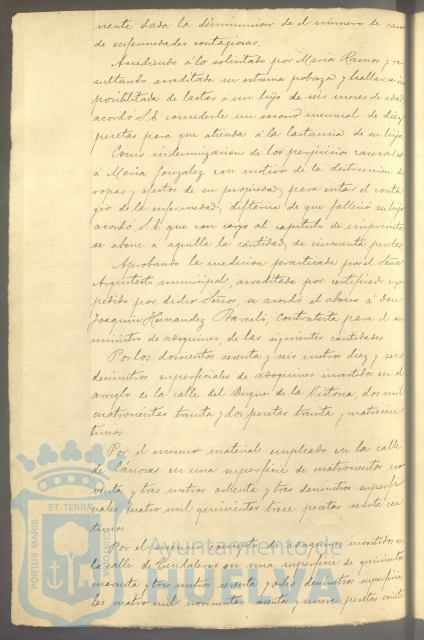 nente dada la disminucion de el número de casos
de enfermedades contagiosas.
Accediendo á lo solicitado por Maria Ramos y re
sultando acreditada su estrema pobreza y hallarse im
posibilitada de lactar á un hijo de seis meses de edad
acordó S.E. concederle un socorro mensual de diez
pesetas para que atienda á la lactancia de su hijo
Como indemnizacion de los perjuicios causados
á Maria Gonzalez con motivo de la destruccion de
ropas y efectos de su propiedad, para evitar el conta
gio de la enfermedad difteria de que falleció su hijo
acordó S.E. que con cargo al capitulo de imprevistos
se abone á aquella la cantidad de cincuenta pesetas
Aprobando la medicion practicada por el Señor
Arquitecto municipal, acreditada por certificado ex
pedido por dicho Señor, se acordó el abono á don
Joaquin Hernandez Barceló, contratista para el su
ministro de adoquines, de las siguientes cantidades
Por los doscientos seis metros diez y seis
decimetros superficiales de adoquines invertidos en el
arreglo de la calle del Duque de la Victoria, dos mil
cuatrocientas treinta y dos pesetas treinta y cuatro cen
timos
Por el mismo material empleado en la calle
de Cánovas en una superficie de cuatrocientos no
venta y tres metros ochenta y tres decimetros superfi
ciales, cuatro mil quinientas trece pesetas cen
timos
Por el mismo concepto de adoquines invertidos en
la calle de Tendaleras en una superficie de quinientos
cuarenta y tres metros y ocho decimetros superficia
les cuatro mil novecientas y nueve pesetas veinte
PORTUS MARIS ET TERRAE CUSTODIA
Ayuntamiento de
HUELVA